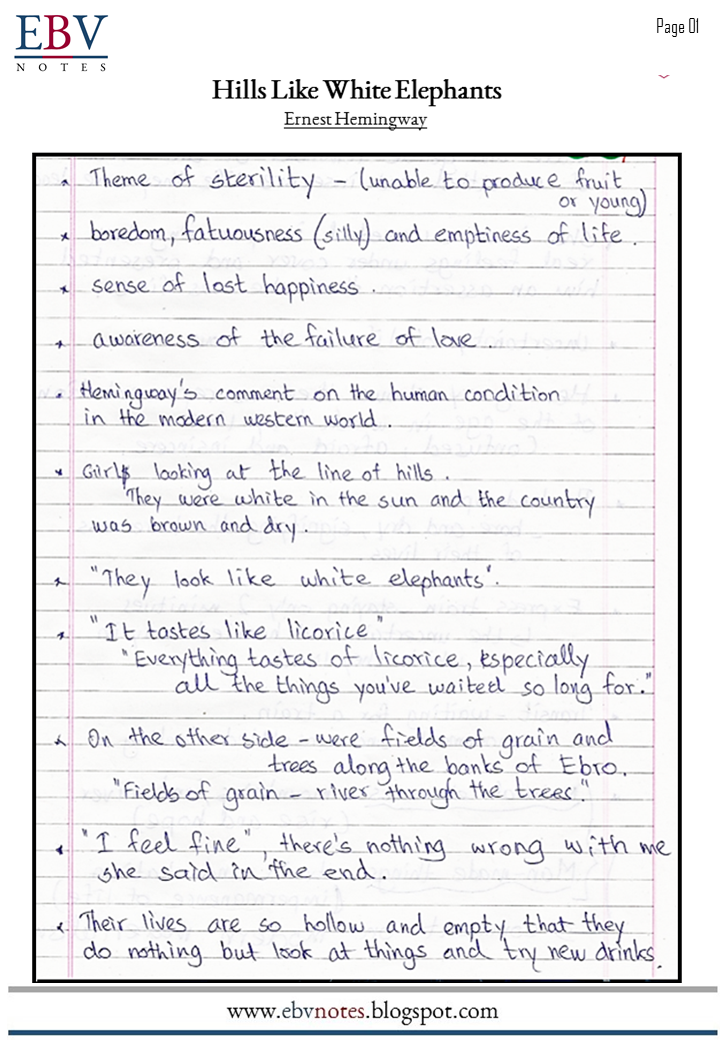 EBV
NOTES
Page 01
Hills Like White Elephants
Ernest Hemingway
* Theme of sterility – (unable to produce fruit
or young)
* boredom, fatuousness (silly) and emptiness of life.
* sense of lost happiness.
* awareness of the failure of love.
* Hemingway's comment on the human condition
in the modern western world.
* Girls looking at the line of hills.
They were white in the sun and the country
was brown and dry.
* "They look like white elephants".
* "It tastes like licorice"
"Everything tastes of licorice, especially
all the things you've waited so long for."
* On the other side – were fields of grain and
trees along the banks of Ebro.
"Fields of grain – river through the trees."
* "I feel fine", there's nothing wrong with me
she said in the end.
* Their lives are so hollow and empty that they
do nothing but look at things and try new drinks.
www.ebvnotes.blogspot.com